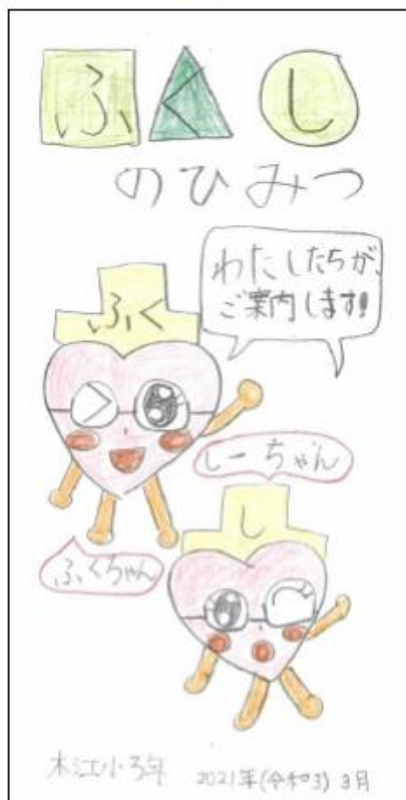 ふくし
のひみつ
わたしたちが、
ご案内します!!
ふく
しーちゃん
し
ふくちゃん
木江小3年 2021年(令和3) 3月